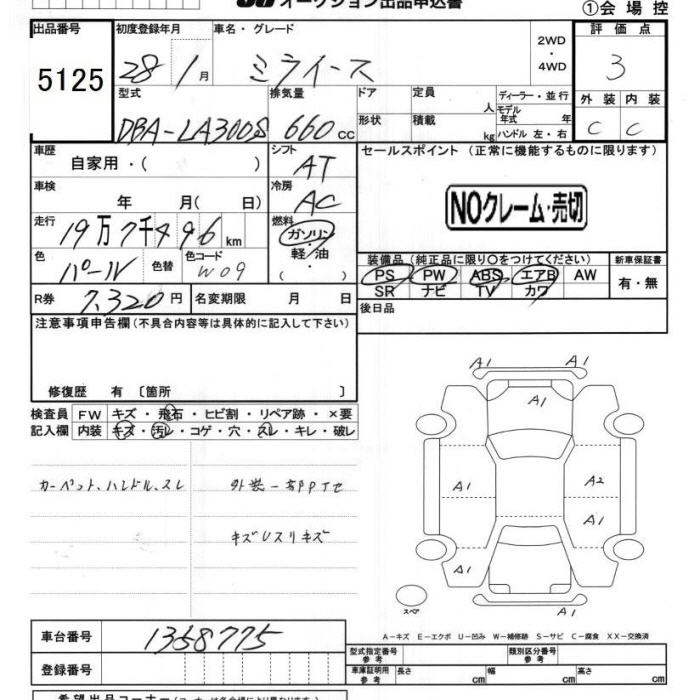 オークション出品申込書
①会場控
出品番号 初度登録年月 車名・グレード 2WD ・ 4WD 評価点
5125 28年1月 ミライース 3
型式 排気量 ドア 定員 人 ディーラー・並行 外装 内装
DBA-LA300S 660 CC 形状 積載 kg モデル年式 年 ハンドル 左・右 C C
車歴 自家用・( ) シフト AT セールスポイント (正常に機能するものに限ります)
車検 年 月( 日) 冷房 AC
NOクレーム・売切
走行 19万7千496 km 燃料 ガソリン・軽油・( )
色 パール 色替 色コード W09
装備品 (純正品に限り○をつけてください) 新車保証書
PS PW ABS エアB AW 有・無
SR ナビ TV カワ
R券 7,320円 名変期限 月 日 後日品
注意事項申告欄(不具合内容等は具体的に記入して下さい)
修復歴 有 〔箇所 〕
検査員 FW キズ・飛石・ヒビ割・リペア跡・×要
記入欄 内装 キズ・汚レ・コゲ・穴・スレ・キレ・破レ
カーペット、ハンドル、スレ
A1 A1
A1
A1 A2
A1
A1
A1
スペア
A-キズ E-エクボ U-凹み W-補修跡 S-サビ C-腐食 XX-交換済
車台番号 1358775
登録番号
型式指定番号 参考 類別区分番号 参考
車庫証明用 参考 長さ cm 幅 cm 高さ cm
希望出品コーナー